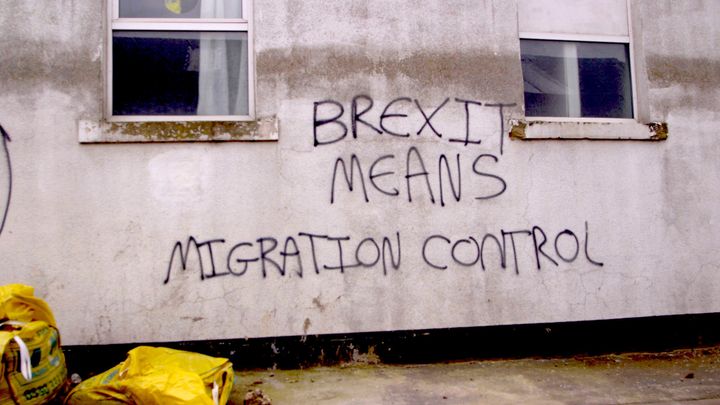 BREXIT
MEANS
MIGRATION CONTROL